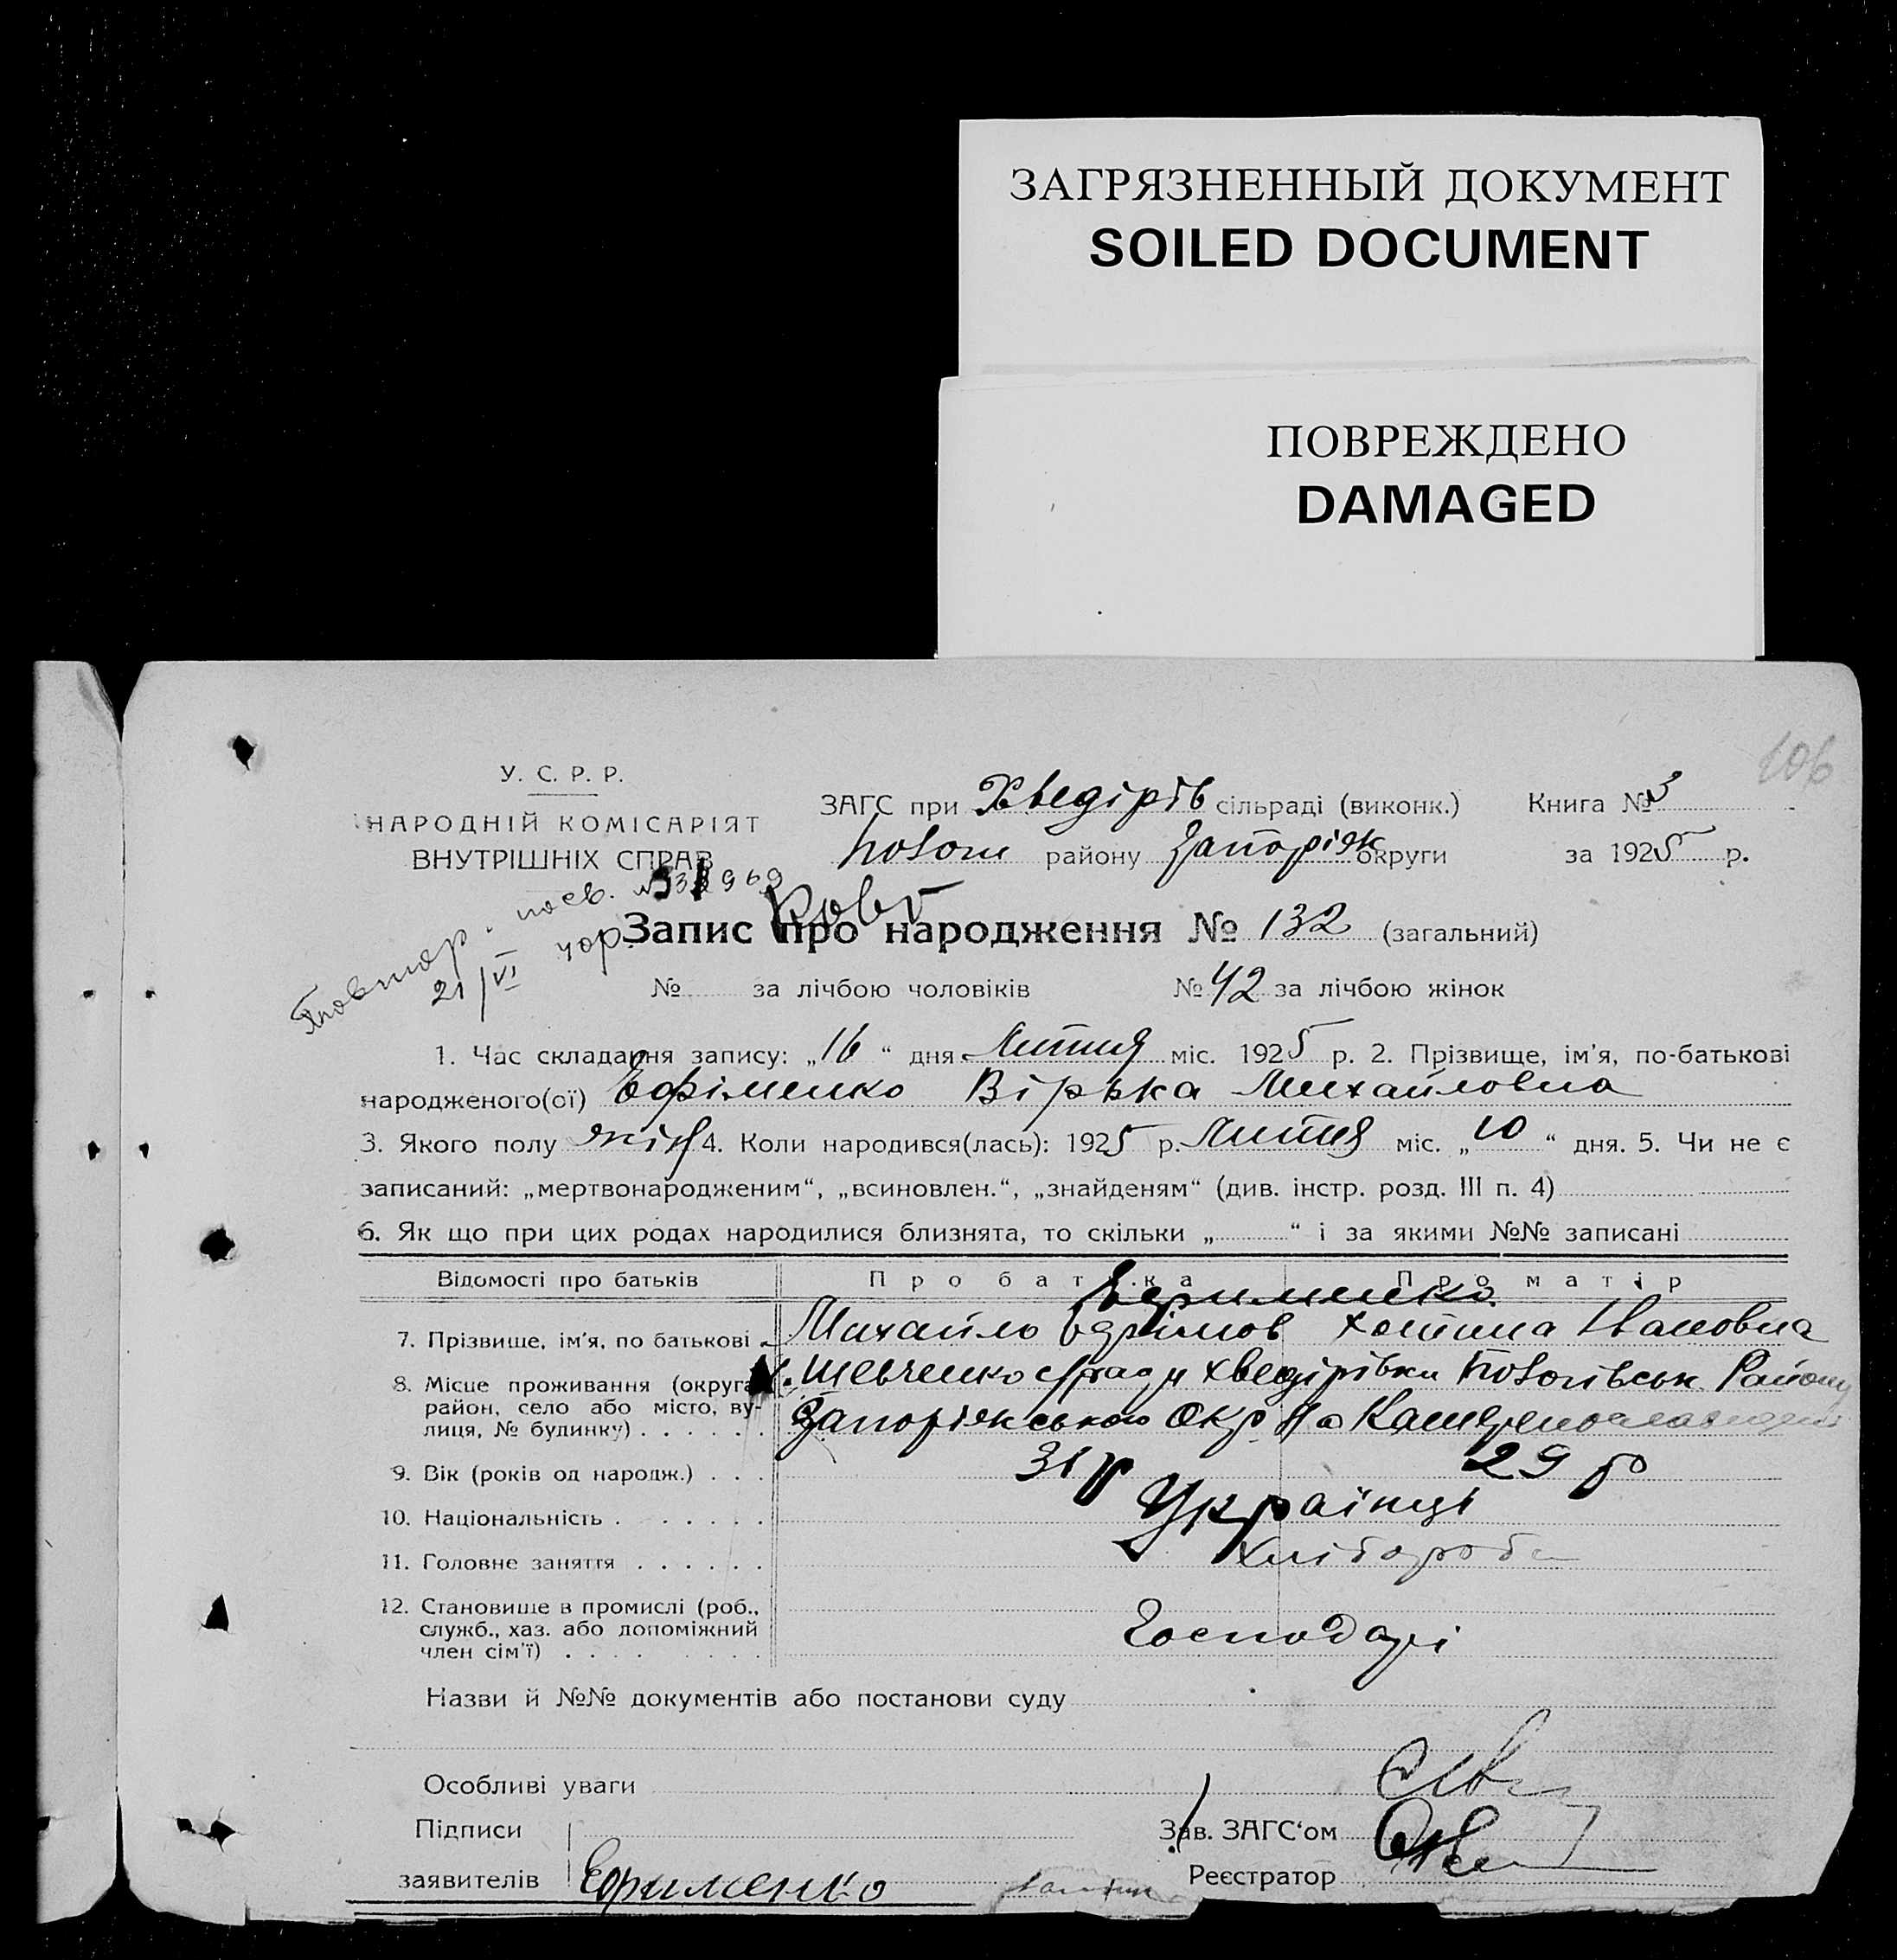 ЗАГРЯЗНЕННЫЙ ДОКУМЕНТ
SOILED DOCUMENT
ПОВРЕЖДЕНО
DAMAGED
106
У. С. Р. Р.
НАРОДНІЙ КОМІСАРІЯТ
ВНУТРІШНІХ СПРАВ
ЗАГС при Хведірів сільраді (виконк.) Книга № 3
району Запоріжк округи за 1925 р.
Повтор. 21/VI
Запис про народження № 132 (загальний)
№ за лічбою чоловіків № 42 за лічбою жінок
1. Час складання запису: „16“ дня Липня міс. 1925 р. 2. Прізвище, ім'я, по-батькові
народженого(ої) Єфіменко Вірька Михайловна
3. Якого полу жін 4. Коли народився(лась): 1925 р. Липня міс. „10“ дня. 5. Чи не є
записаний: „мертвонародженим“, „всиновлен.“, „знайденям“ (див. інстр. розд. III п. 4)
6. Як що при цих родах народилися близнята, то скільки „ “ і за якими №№ записані
Відомості про батьків Про батька Про матір
Ефименко
7. Прізвище, ім'я, по батькові Михайло Єфімов Хотина Івановна
8. Місце проживання (округа, район, село або місто, вулиця, № будинку) Шевченко с/ради Хведірівки Район
Запоріжською Окр
9. Вік (років од народж.) 31 р 29 р
10. Національність Українці
11. Головне заняття Хлібороби
12. Становище в промислі (роб., служб., хаз. або допоміжний член сім'ї) Господарі
Назви й №№ документів або постанови суду
Особливі уваги
Підписи
заявителів Ефименко
Зав. ЗАГС‘ом
Реєстратор